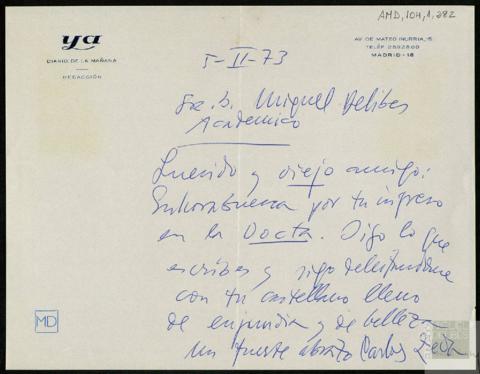 AMD,104,1,282
ya
DIARIO DE LA MAÑANA
REDACCIÓN
AV. DE MATEO INURRIA, 15
TELÉF. 2592800
MADRID-16
5-II-73
Sr. D. Miguel Delibes
Académico
Querido y viejo amigo:
Enhorabuena por tu ingreso
en la Docta. Sigo lo que
escribes y sigo deleitándome
con tu castellano lleno
de enjundia y de belleza
Un fuerte abrazo Carlos
MD